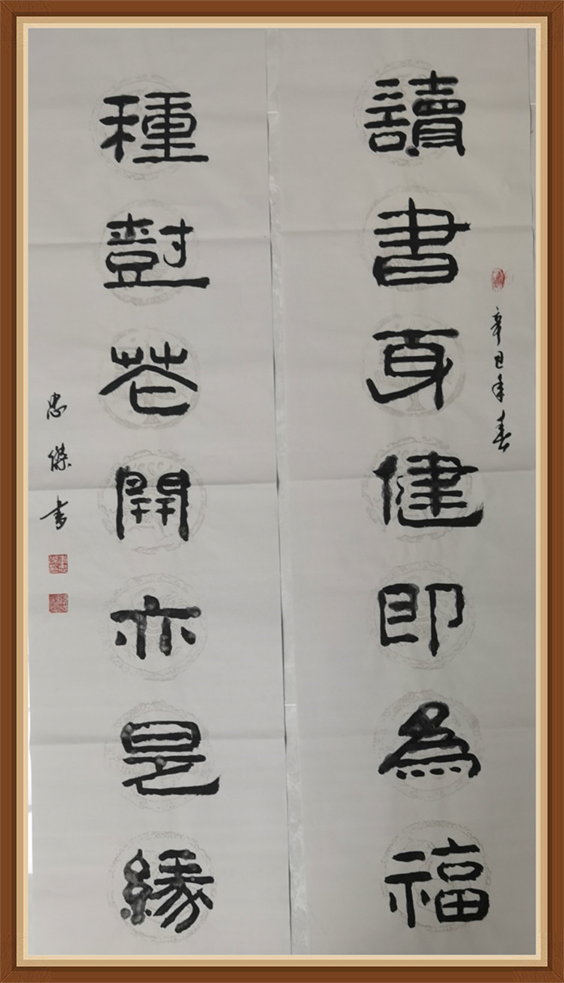 辛丑年春
讀書身健即為福
種對花開亦是緣
忠傑書